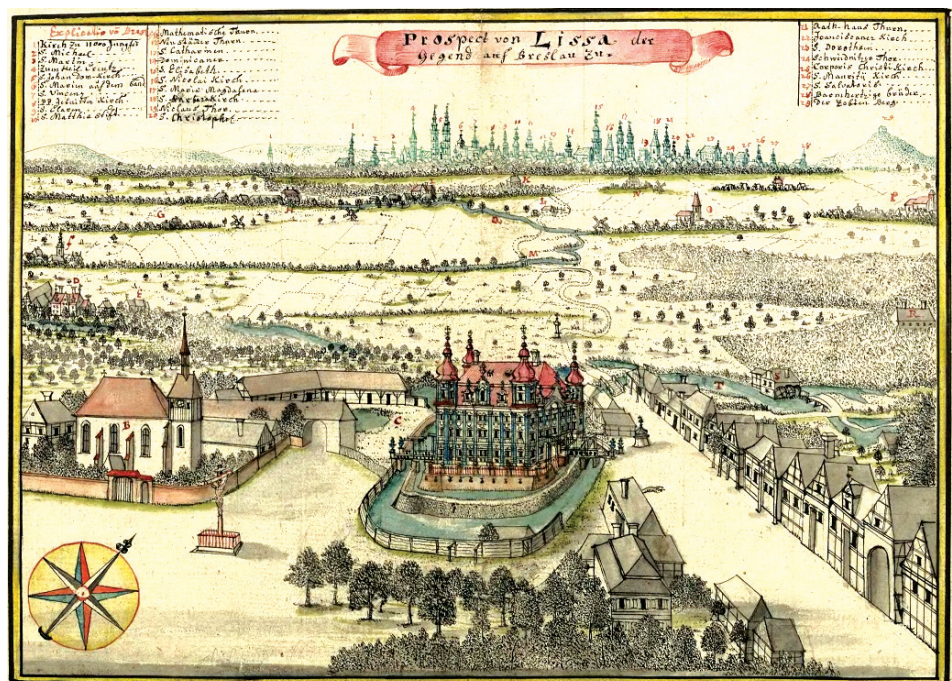 Prospect von Lissa. der
Gegend auf Breslau zu.
Explicatio vō
Kirch zu 11000 Jungfr
S. Michael
S. Martin
Zum Heil. Creutz
S. Johan Dom-Kirch
S. Marien auf dem Sand
S. Vincenz
PP. Jesuitten Kirch
S. Claren
S. Matthiæ Stift
Mathematische Thurn
Neu Städter Thurn
S. Catharinen
Dominicaner
S. Elisabeth
S. Nicolai Kirch
S. Maria Magdalena
S. Barbara Kirch
Niclaus Thor
S. Christophori
Rath Haus Thurn
Franciscaner Kirch
S. Dorotheæ
Schweidnitzer Thor
Corporis Christi Kirch
S. Mauritij Kirch
S. Salvatoris
Barmhertzige brüder
Der Zobten Berg
B
C
D
G
H
K
L
M
N
O
P
R
S
T